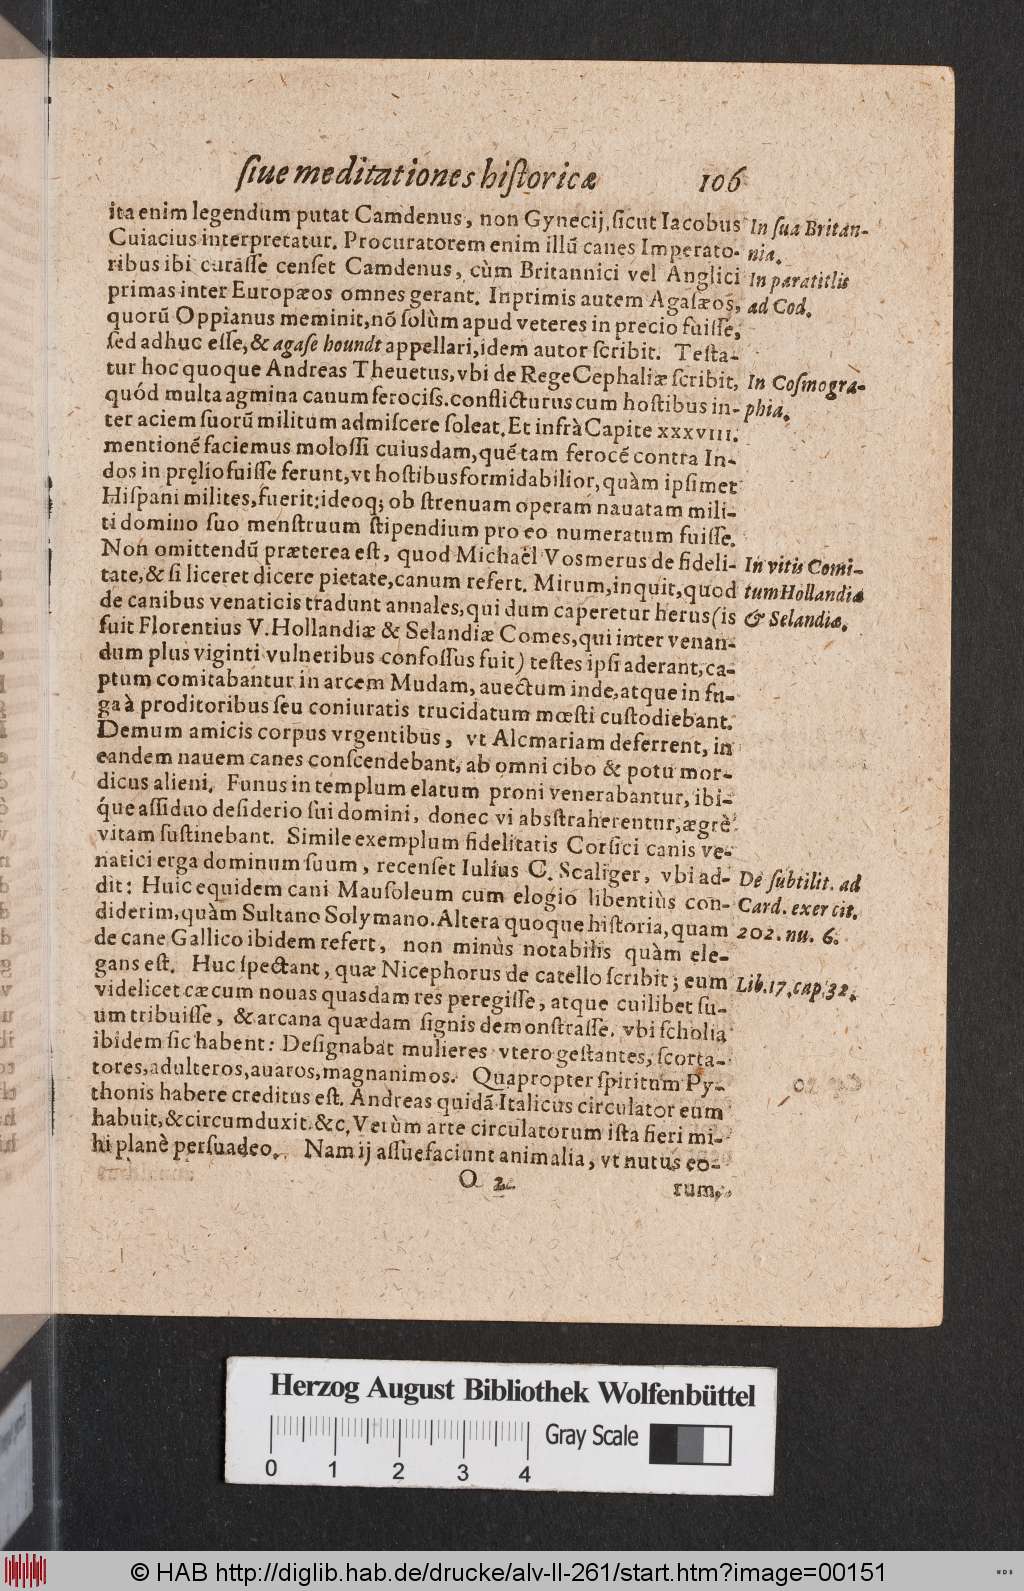 siue meditationes historicæ 106
ita enim legendum putat Camdenus, non Gynecij, sicut Iacobus
Cuiacius interpretatur. Procuratorem enim illũ canes Imperato-
ribus ibi curasse censet Camdenus, cùm Britannici vel Anglici
primas inter Europæos omnes gerant. Inprimis autem Agasæos,
quorũ Oppianus meminit, nõ solùm apud veteres in precio fuisse,
sed adhuc esse, & agase houndt appellari, idem autor scribit. Testa-
tur hoc quoque Andreas Theuetus, vbi de Rege Cephaliæ scribit,
quód multa agmina canum ferociss. conflicturus cum hostibus in-
ter aciem suorũ militum admiscere soleat. Et infrà Capite XXXVIII.
mentioné faciemus molossi cuiusdam, qué tam ferocé contra In-
dos in pręlio fuisse ferunt, vt hostibus formidabilior, quàm ipsimet
Hispani milites, fuerit: ideoq; ob strenuam operam nauatam mili-
ti domino suo menstruum stipendium pro eo numeratum fuisse.
Non omittendũ præterea est, quod Michaël Vosmerus de fideli-
tate, & si liceret dicere pietate, canum refert. Mirum, inquit, quod
de canibus venaticis tradunt annales, qui dum caperetur herus (is
fuit Florentius V. Hollandiæ & Selandiæ Comes, qui inter venan-
dum plus viginti vulneribus confossus fuit) testes ipsi aderant, ca-
ptum comitabantur in arcem Mudam, auectum inde, atque in fu-
ga à proditoribus seu coniuratis trucidatum mœsti custodiebant.
Demum amicis corpus vrgentibus, vt Alcmariam deferrent, in
eandem nauem canes conscendebant, ab omni cibo & potu mor-
dicus alieni. Funus in templum elatum proni venerabantur, ibi-
q́ue assiduo desiderio sui domini, donec vi absstraherentur, ægrè
vitam sustinebant. Simile exemplum fidelitatis Corsici canis ve-
natici erga dominum suum, recenset Iulius C. Scaliger, vbi ad-
dit: Huic equidem cani Mausoleum cum elogio libentiùs con-
diderim, quàm Sultano Solymano. Altera quoque historia, quam
de cane Gallico ibidem refert, non minùs notabilis quàm ele-
gans est. Huc spectant, quæ Nicephorus de catello scribit; eum
videlicet cæcum nouas quasdam res peregisse, atque cuilibet su-
um tribuisse, & arcana quædam signis demonstrasse. vbi scholia
ibidem sic habent: Designabat mulieres vtero gestantes, scorta-
tores, adulteros, auaros, magnanimos. Quapropter spiritum Py-
thonis habere creditus est. Andreas quidã Italicus circulator eum
habuit, & circumduxit. &c. Verùm arte circulatorum ista fieri mi-
hi planè persuadeo. Nam ij assuefaciunt animalia, vt nutus eo-
O 2 rum,
In sua Britan-
nia.
In paratitlis
ad Cod.
In Cosmogra-
phia.
In vitis Comi-
tum Hollandiæ
& Selandiæ.
De subtilit. ad
Card. exercit.
202. nu. 6.
Lib. 17. cap. 32.
Herzog August Bibliothek Wolfenbüttel
Gray Scale
0 1 2 3 4
© HAB http://diglib.hab.de/drucke/alv-ll-261/start.htm?image=00151